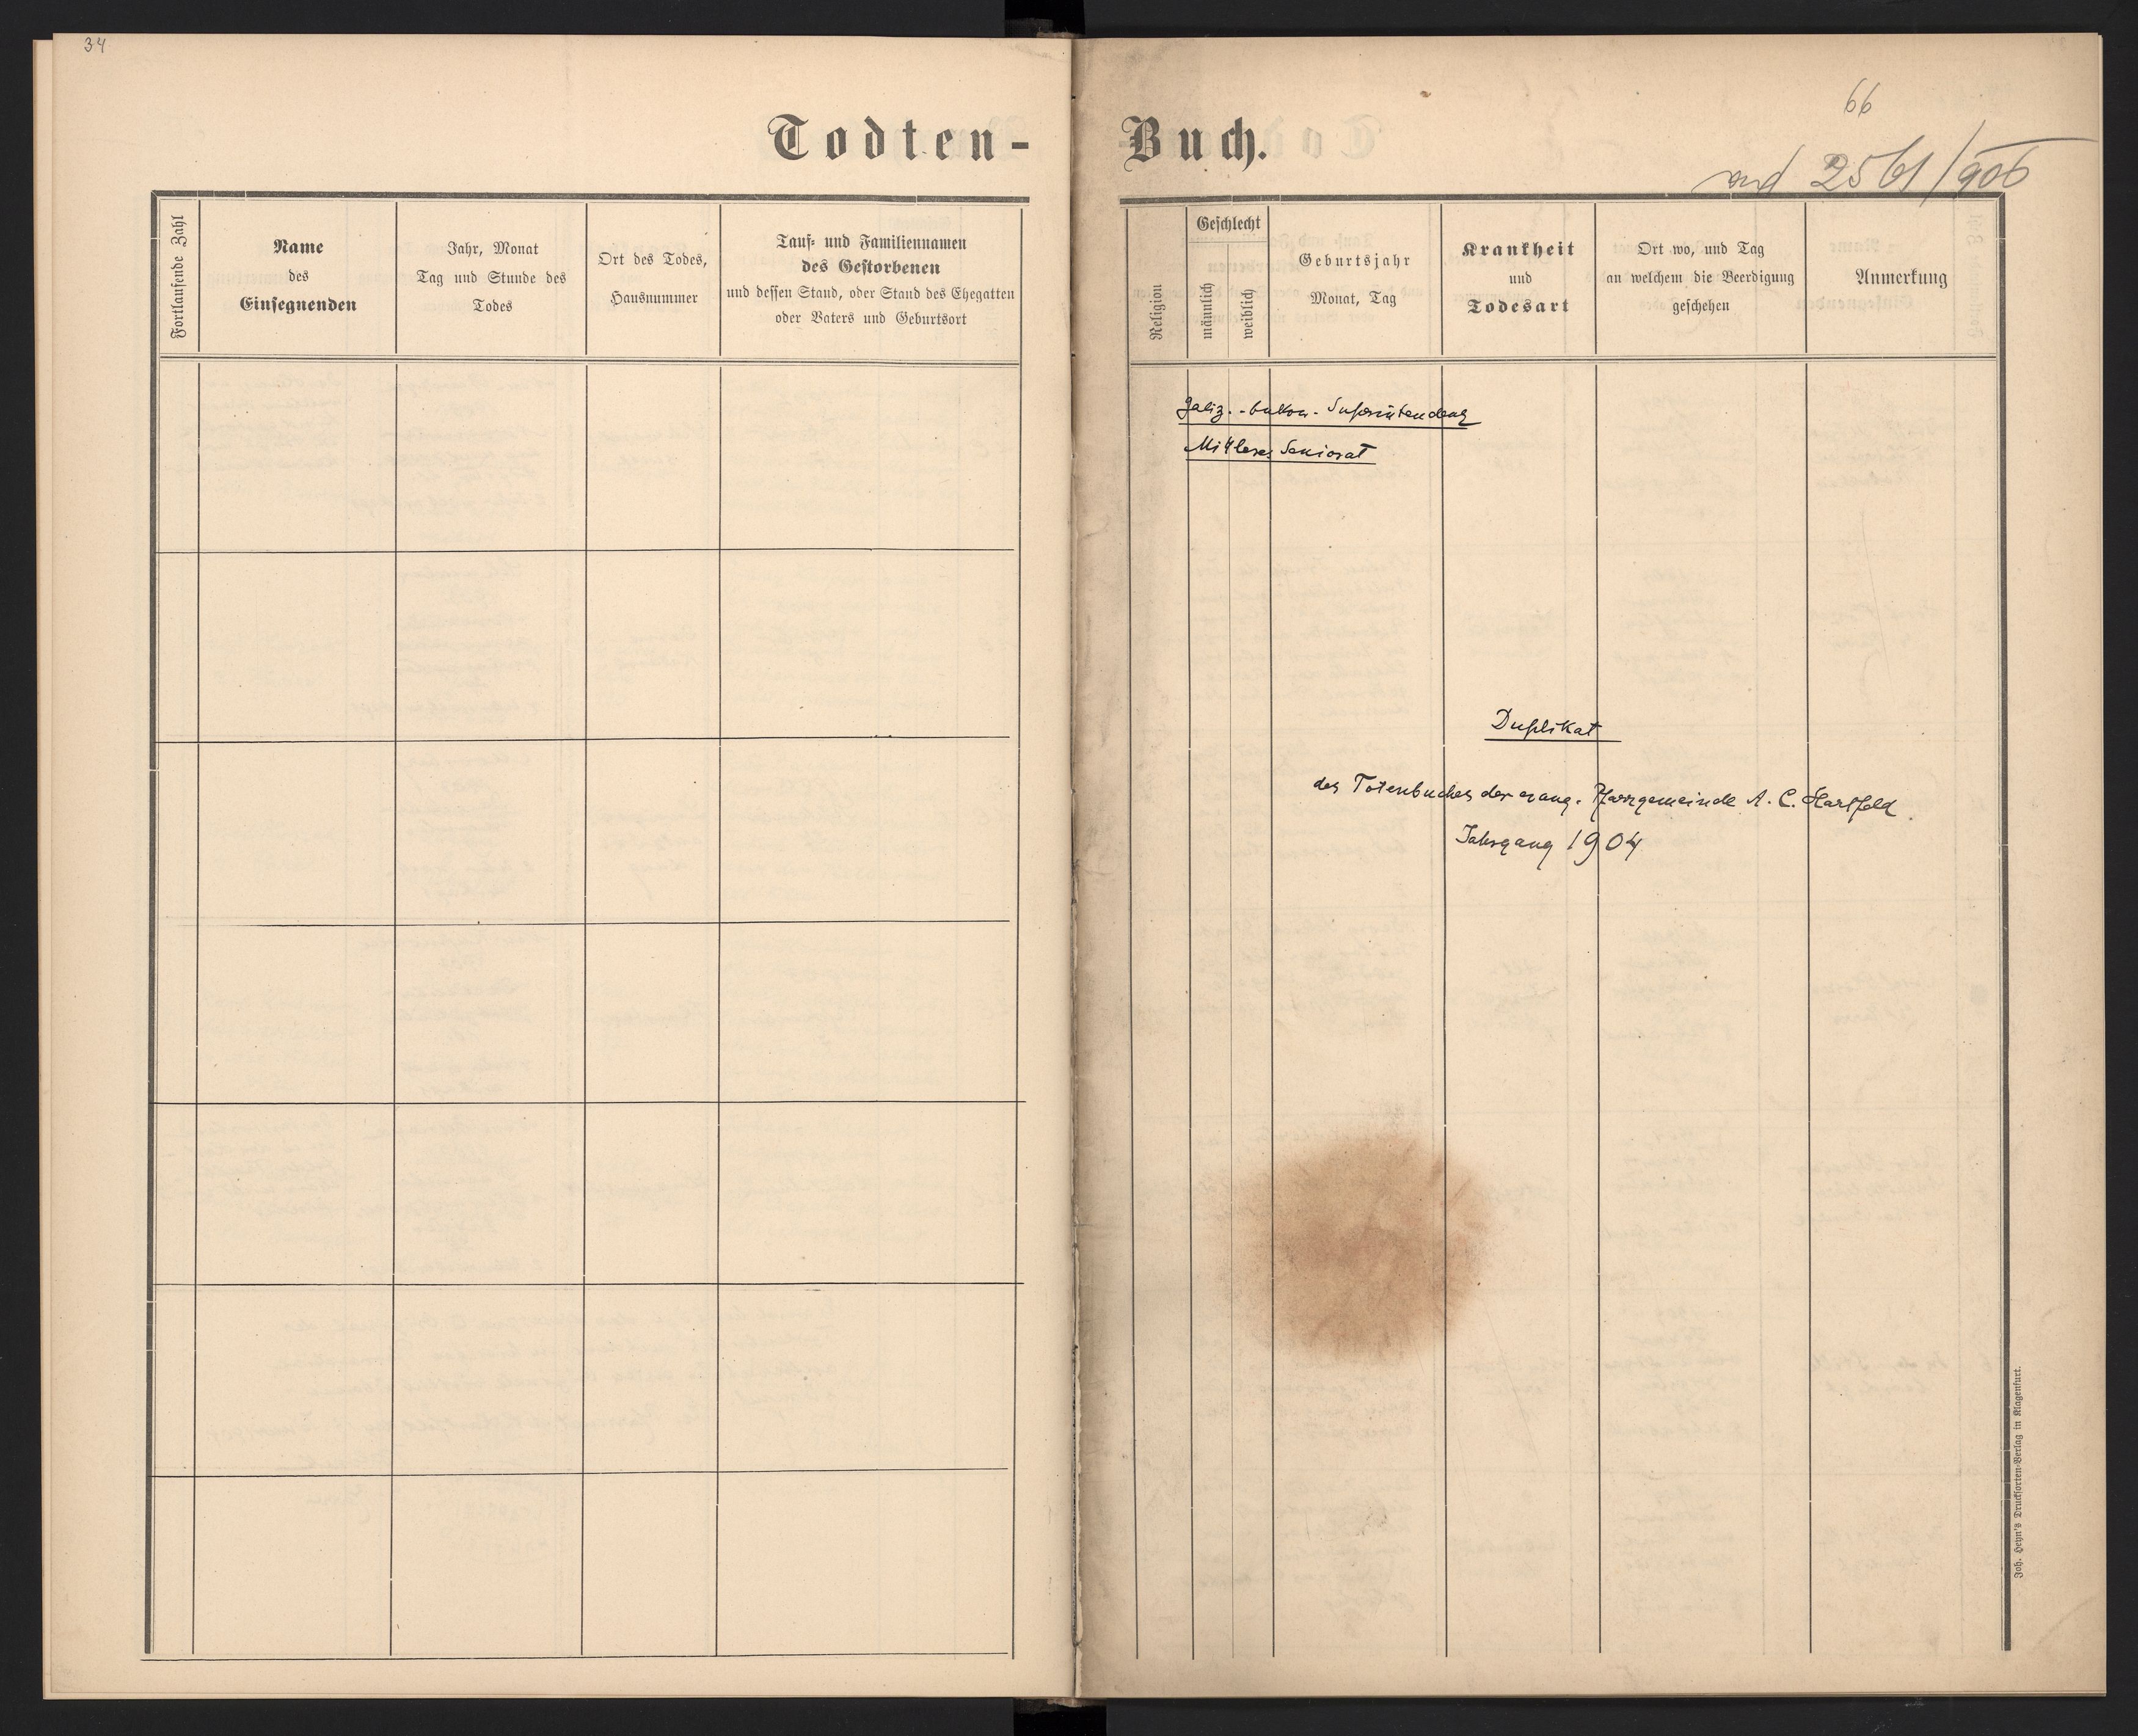 34
Todten-
Fortlaufende Zahl
Name
des
Einsegnenden
Jahr, Monat
Tag und Stunde des
Todes
Ort des Todes,
Hausnummer
Tauf- und Familiennamen
des Gestorbenen
und dessen Stand, oder Stand des Ehegatten
oder Vaters und Geburtsort
66
Buch.
2561/906
Religion
Geschlecht
männlich
weiblich
Geburtsjahr
Monat, Tag
Krankheit
und
Todesart
Ort wo, und Tag
an welchem die Beerdigung
geschehen
Anmerkung
Galiz.-bukow. Superintendenz
Mittleres Seniorat
Duplikat
des Totenbuches der evang. Pfarrgemeinde A. C. Hartfeld.
Jahrgang 1904
Joh. Heyn's Drucksorten-Verlag in Klagenfurt.